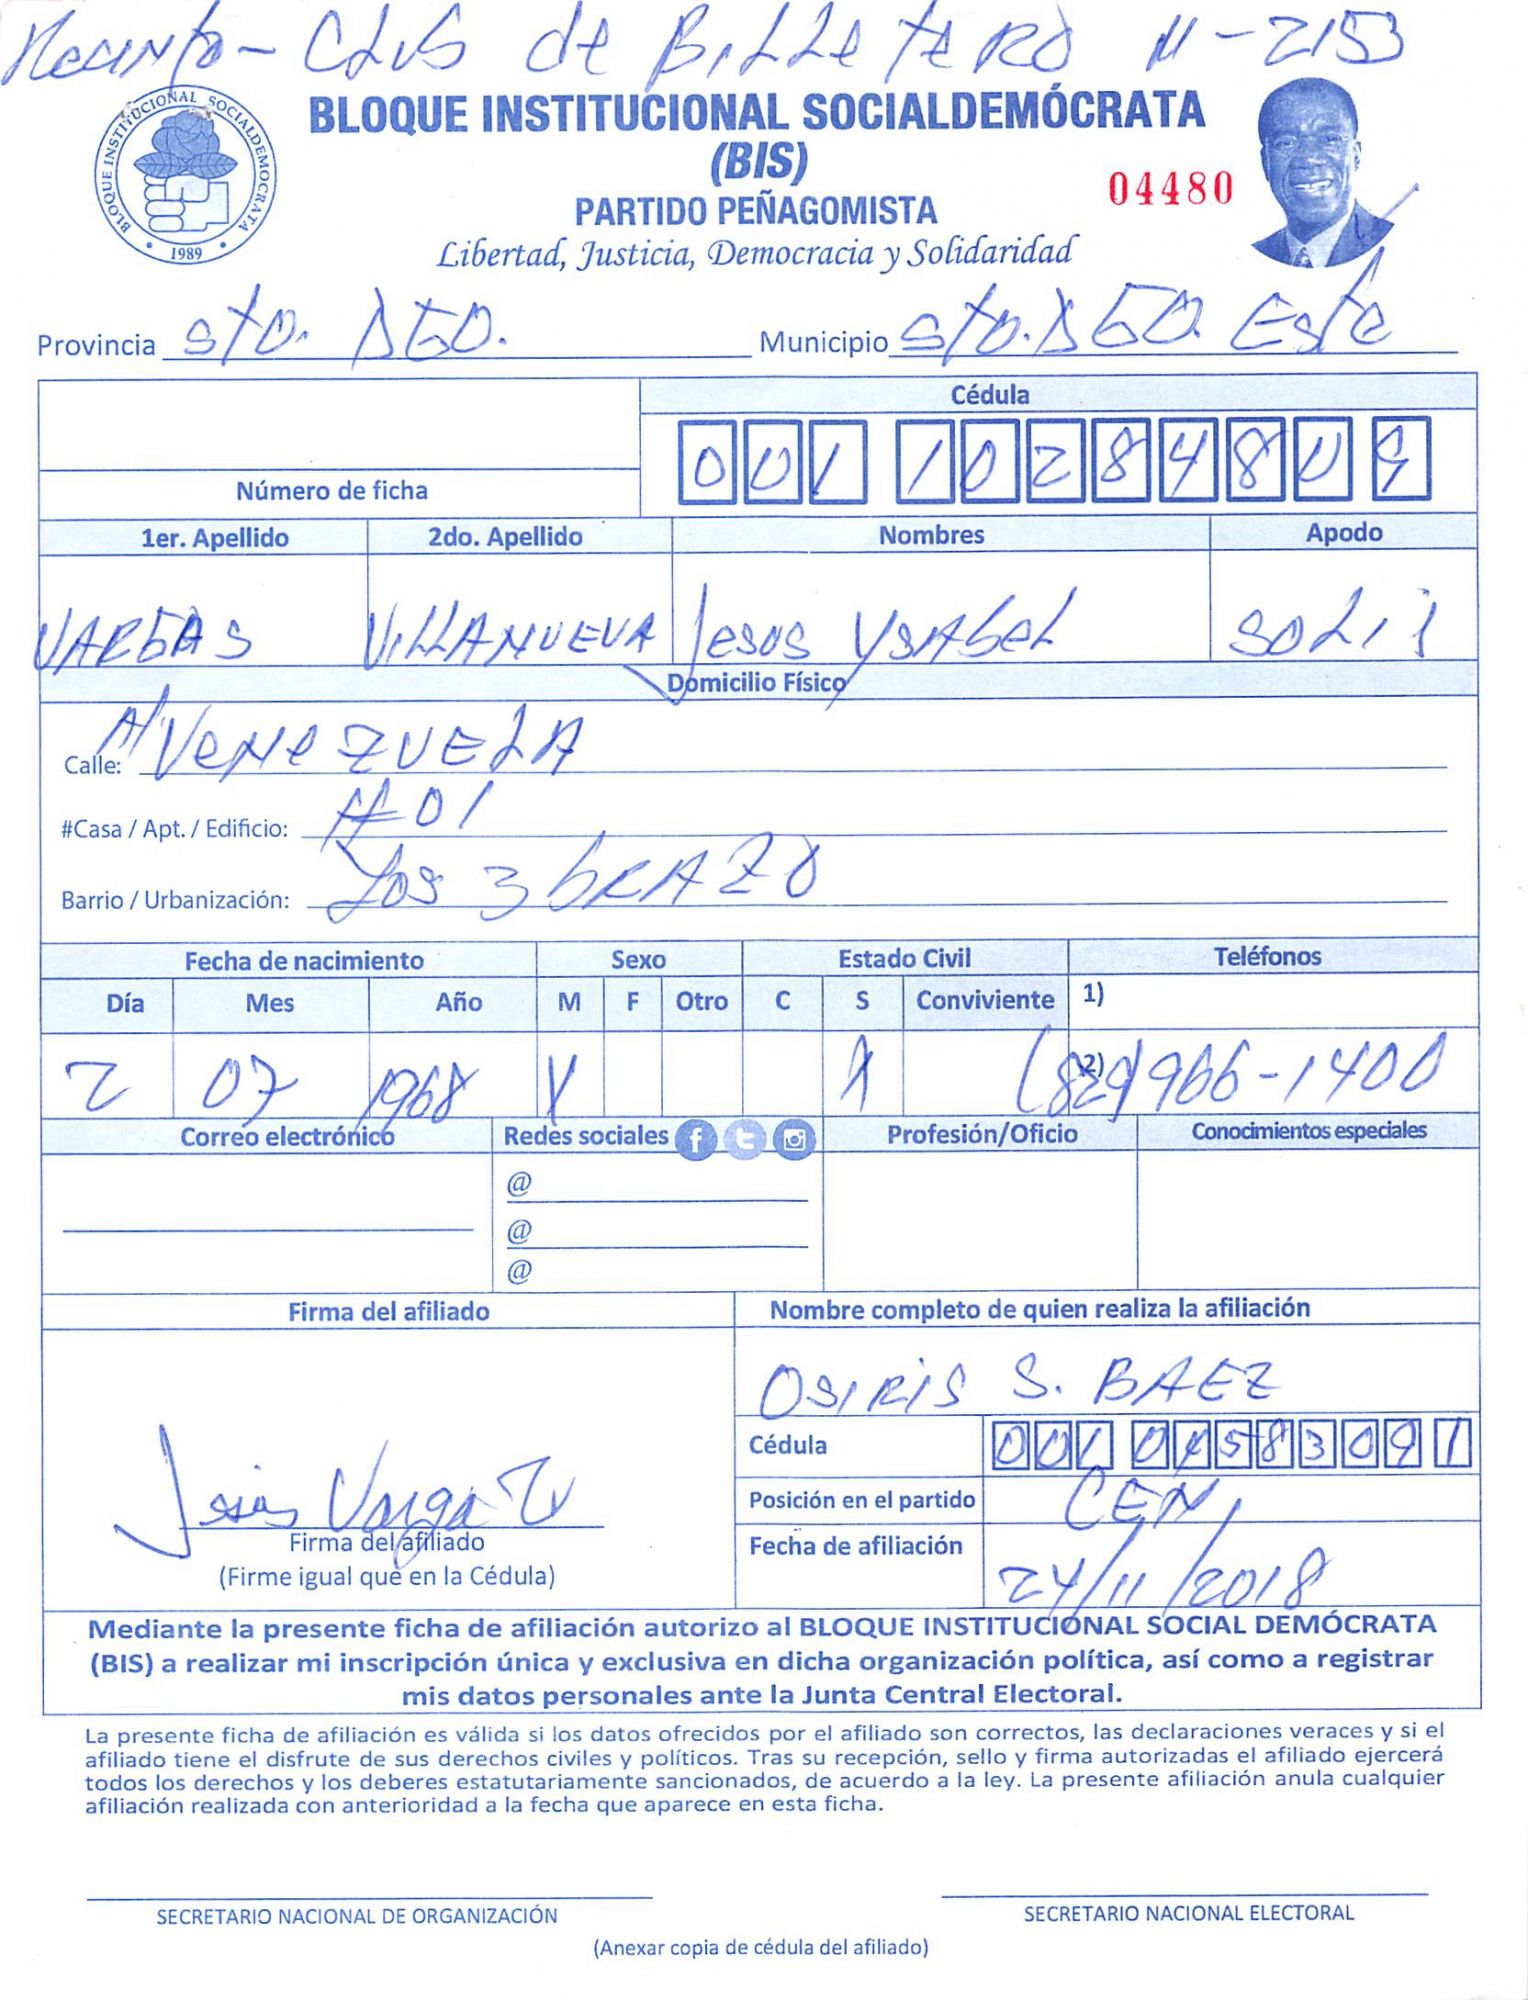 Recinto - CLUB de BiLLeteRO M-2153
BLOQUE INSTITUCIONAL SOCIALDEMÓCRATA
(BIS)
04480
PARTIDO PEÑAGOMISTA
Libertad, Justicia, Democracia y Solidaridad
BLOQUE INSTITUCIONAL SOCIALDEMOCRATA
1989
Provincia Sto. DGO. Municipio Sto. DGO. Este
Cédula
001 1028480 9
Número de ficha
1er. Apellido 2do. Apellido Nombres Apodo
VARGAS ViLLANUEVA Jesus YSAbeL SOLiS
Domicilio Físico
Calle: A/ VeNeZUELA
#Casa / Apt. / Edificio: #01
Barrio / Urbanización: Los 3 bRAZO
Fecha de nacimiento Sexo Estado Civil Teléfonos
Día Mes Año M F Otro C S Conviviente 1)
2 07 1968 X X 2) (829) 966-1400
Correo electrónico Redes sociales Profesión/Oficio Conocimientos especiales
@
@
@
Firma del afiliado Nombre completo de quien realiza la afiliación
OSIRIS S. BAEZ
Cédula 001 0458309 1
Jesús Vargas V
Posición en el partido CEN
Firma del afiliado
(Firme igual que en la Cédula)
Fecha de afiliación 24/11/2018
Mediante la presente ficha de afiliación autorizo al BLOQUE INSTITUCIONAL SOCIAL DEMÓCRATA
(BIS) a realizar mi inscripción única y exclusiva en dicha organización política, así como a registrar
mis datos personales ante la Junta Central Electoral.
La presente ficha de afiliación es válida si los datos ofrecidos por el afiliado son correctos, las declaraciones veraces y si el
afiliado tiene el disfrute de sus derechos civiles y políticos. Tras su recepción, sello y firma autorizadas el afiliado ejercerá
todos los derechos y los deberes estatutariamente sancionados, de acuerdo a la ley. La presente afiliación anula cualquier
afiliación realizada con anterioridad a la fecha que aparece en esta ficha.
SECRETARIO NACIONAL DE ORGANIZACIÓN SECRETARIO NACIONAL ELECTORAL
(Anexar copia de cédula del afiliado)